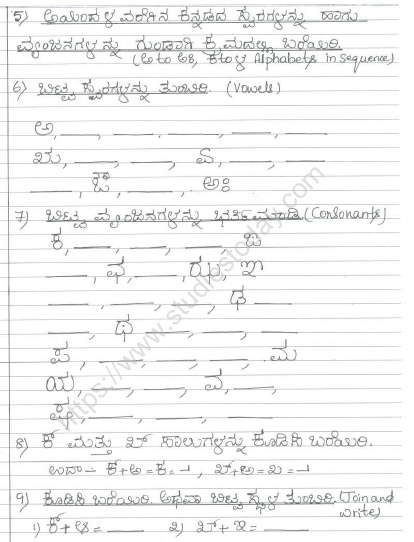 5) ಅಯಿಂದ ಳ ವರೆಗಿನ ಕನ್ನಡದ ಸ್ವರಗಳನ್ನು ಹಾಗು
ವ್ಯಂಜನಗಳನ್ನು ಗುಂಡಾಗಿ ಕ್ರಮದಲ್ಲಿ ಬರೆಯಿರಿ.
(ಅ to ಅಃ, ಕ to ಳ Alphabets in sequence)
6) ಬಿಟ್ಟ ಸ್ವರಗಳನ್ನು ತುಂಬಿರಿ. (Vowels)
ಅ, ___, ___, ___, ___, ___
ಋ, ___, ___, ಏ, ___, ___
___, ಔ, ___, ಅಃ
7) ಬಿಟ್ಟ ವ್ಯಂಜನಗಳನ್ನು ಭರ್ತಿಮಾಡಿ. (Consonants)
ಕ, ___, ___, ___, ಙ
___, ಛ, ___, ಝ, ಞ
___, ___, ___, ಢ ___
___, ಥ, ___, ___, ___
ಪ, ___, ___, ___, ಮ
ಯ, ___, ___, ವ, ___,
ಷ, ___, ___, ___
8) ಕ್ ಮತ್ತು ಖ್ ಸಾಲುಗಳನ್ನು ಕೂಡಿಸಿ ಬರೆಯಿರಿ.
ಉದಾ - ಕ್+ಅ=ಕ=ಾ, ಖ್+ಅ=ಖ=ಾ
9) ಕೂಡಿಸಿ ಬರೆಯಿರಿ. ಅಥವಾ ಬಿಟ್ಟ ಸ್ಥಳ ತುಂಬಿರಿ. (Join and write)
1) ಕ್+ಆ= ___ 2) ಖ್+ಇ= ___
https://www.studiestoday.com